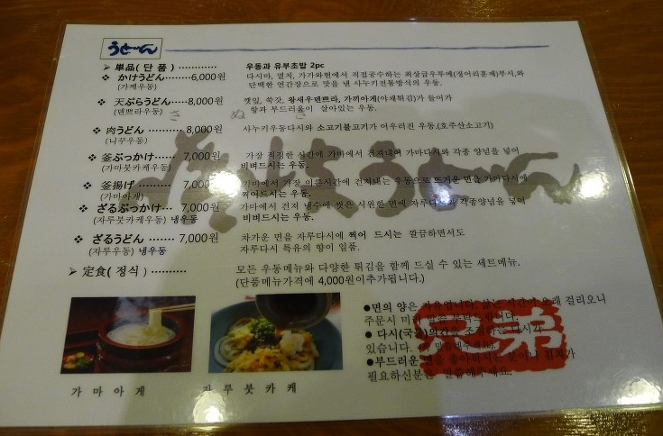 うどん
➢ 単品( 단 품 ) …………
우동과 유부초밥 2pc
❖ かけうどん………6,000원
(가께우동)
다시마, 멸치, 가가와현에서 직접공수하는 최상급우루메(정어리훈제)부시,와
단백한 연간장으로 맛을 낸 사누기전통방식의 우동.
❖ 天ぷらうどん……8,000원
(덴쁘라우동)
깻잎, 쑥갓, 왕새우덴쁘라, 가끼아게(야채튀김)가 들어가
향과 부드러움이 살아있는 우동.
さぬき
❖ 肉うどん ……… 8,000원
(니꾸우동)
사누키우동다시와 소고기불고기가 어우러진 우동.(호주산소고기)
❖ 釜ぶっかけ… 7,000원
(가마붓카케우동)
가장 적정한 시간에 가마에서 건져내어 가마다시와 각종 양념을 넣어
비벼드시는 우동.
❖ 釜揚げ ……… 7,000원
(가마아게)
가마에서 가장 시간에 건져내는 우동으로 뜨거운 면을 가마다시에
찍어드시는 우동.
❖ ざるぶっかけ… 7,000원
(자루붓카케우동) 냉우동
가마에서 건져 냉수에 씻은 시원한 면에 자루다시와 각종양념을 넣어
비벼드시는 우동.
❖ ざるうどん …… 7,000원
(자루우동) 냉우동
차가운 면을 자루다시에 찍어 드시는 깔끔하면서도
자루다시 특유의 향이 일품.
➢ 定食( 정식 ) …………
모든 우동메뉴와 다양한 튀김을 함께 드실 수 있는 세트메뉴.
(단품메뉴가격에 4,000원이추가됩니다.)
うどん
●면의 양은 오래 걸리오니
주문시 미리
● 다시(국
있습니다.
●부드러운
필요하신분은 말씀해주세요.
兄弟
가 마 아 게
자 루 붓 카 케